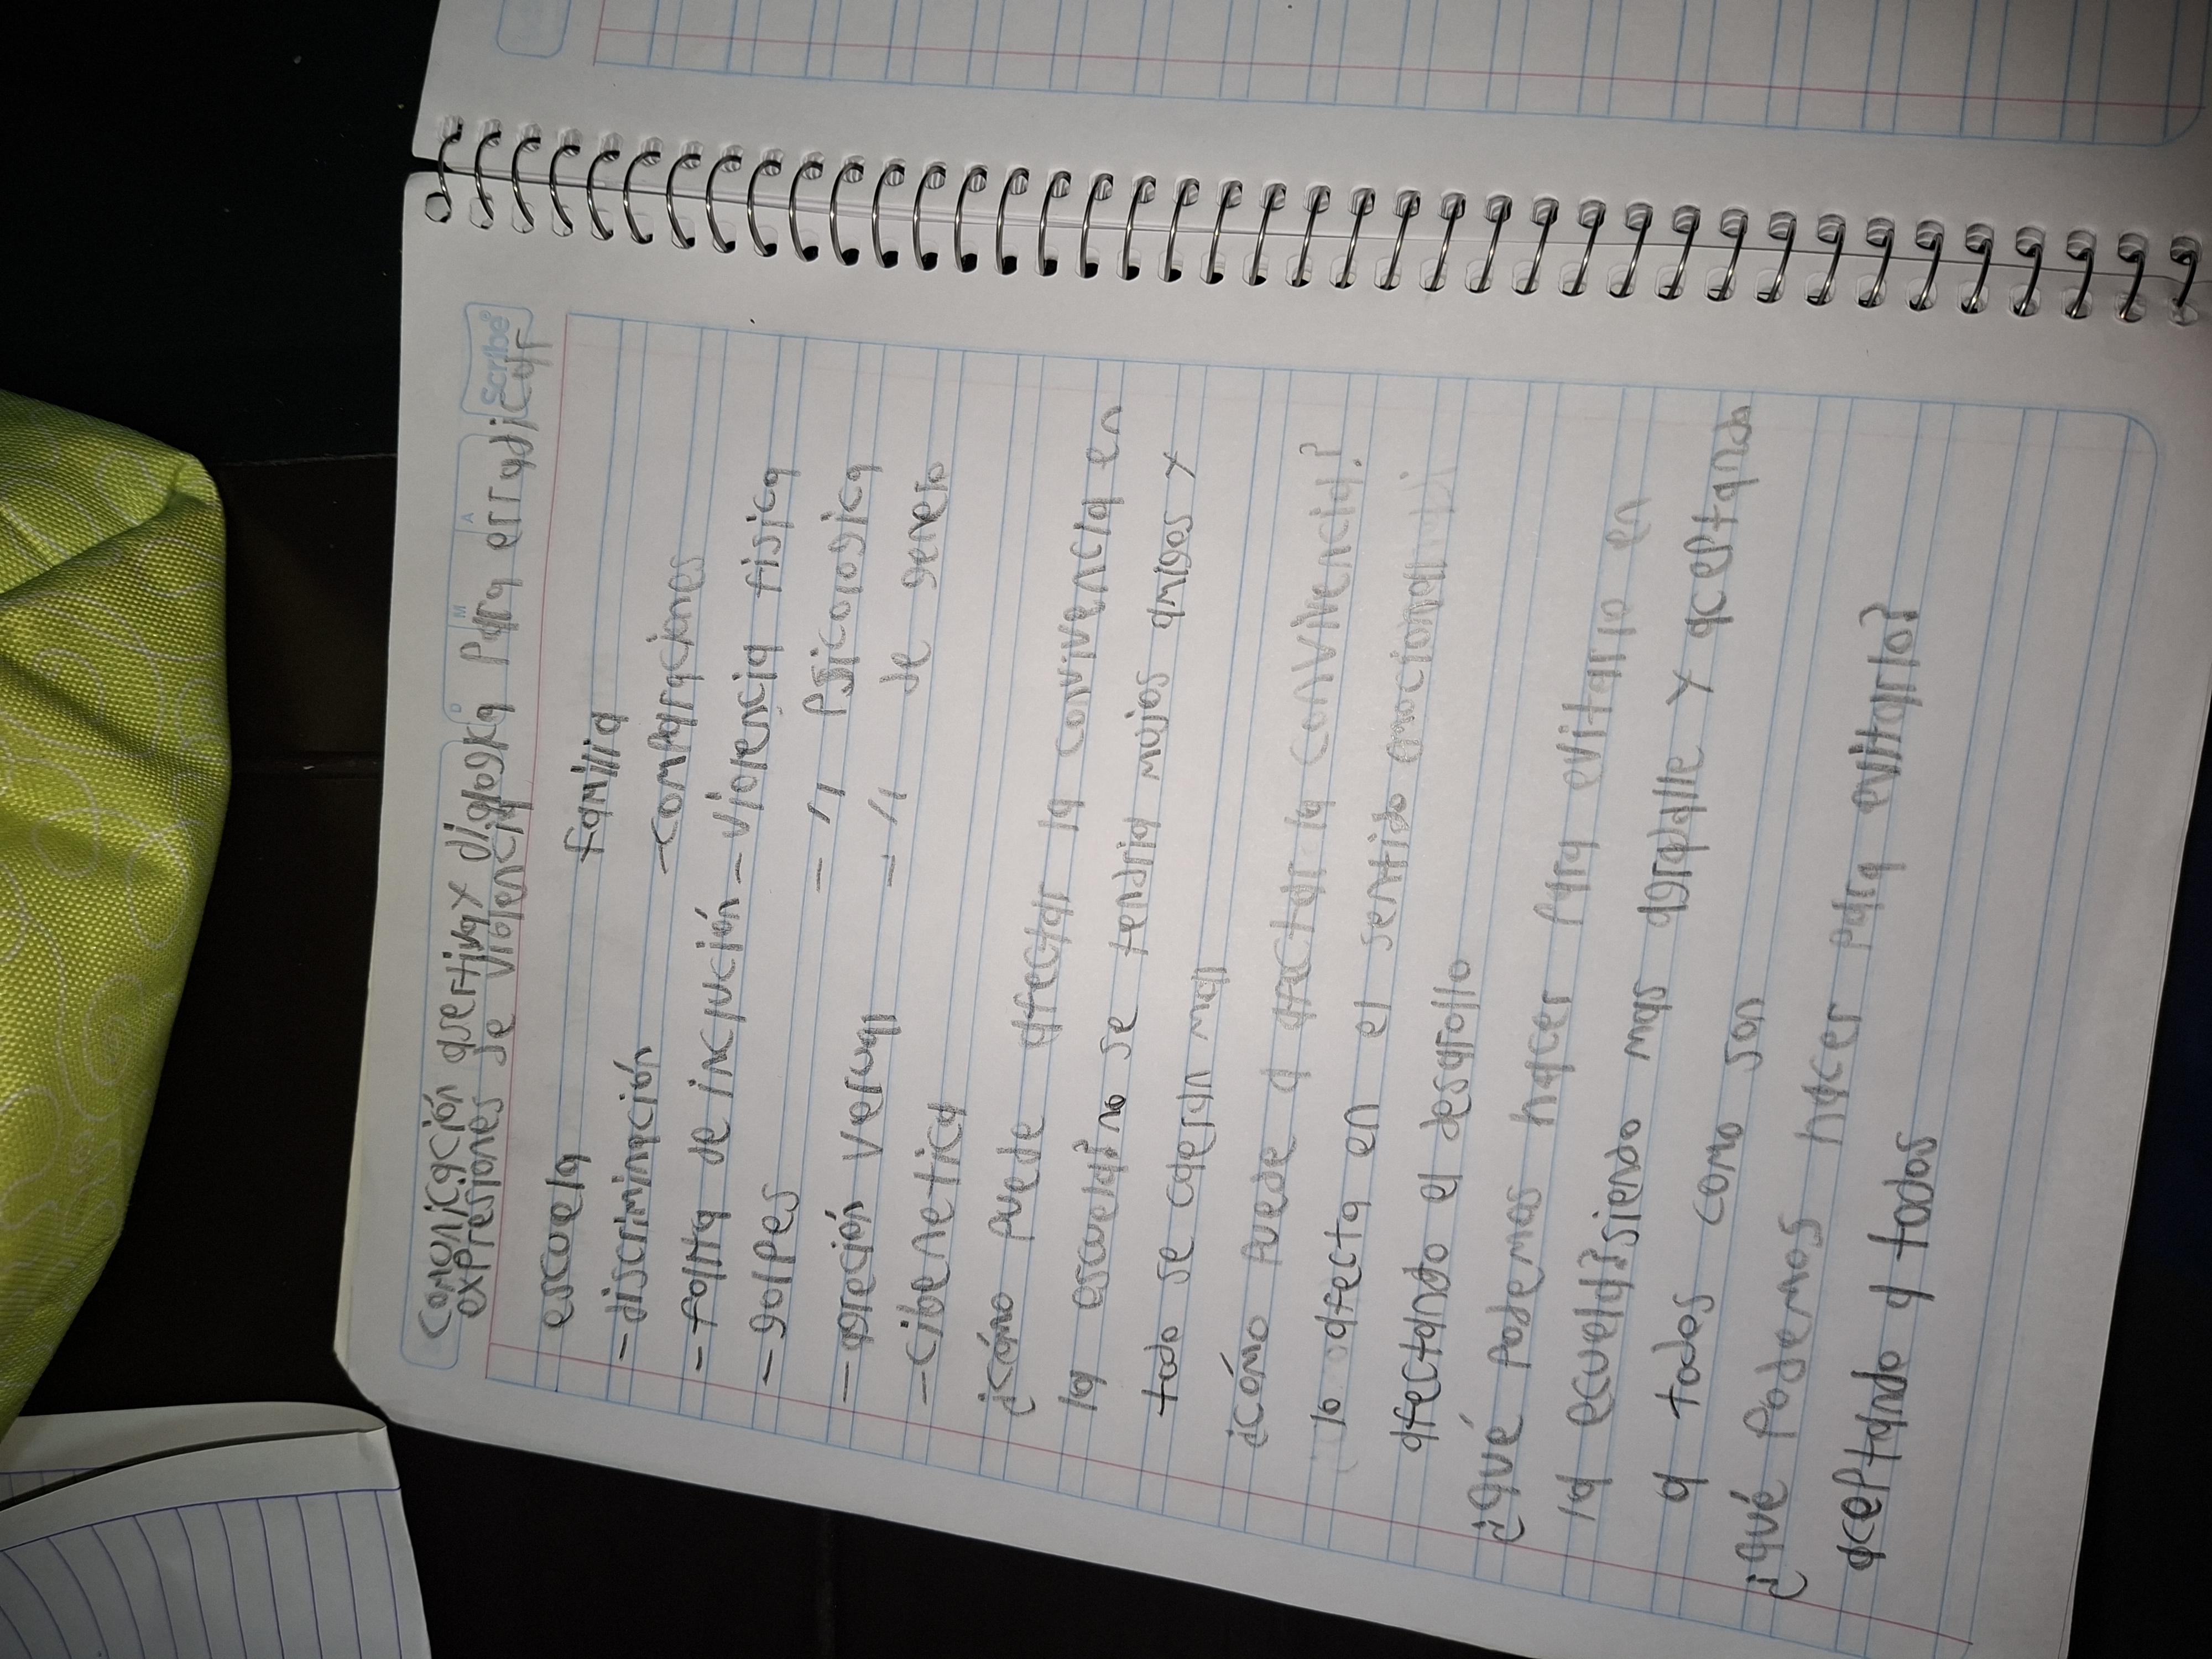 Scribe®
D M A
Comonicación asertiva y dialogika para erradicar
expresiones de violencia
escuela familia
-discriminación -comparaciones
-falta de inclución -violencia fisica
-golpes - // psicologica
-agreción verval - // de genero
-cibernetica
¿cómo puede afectar la convivencia en
la escuela? no se tendria mojos amigos y
todo se caeran mal
¿cómo puede a afactar la convivencia?
lo afecta en el sentido emocional
afectando el desarollo
¿qué podemos hacer para evitarlo en
la ecuela? siendo mas agradable y aceptando
a todos como son
¿qué podemos hacer para evitarlo?
aceptando a todos